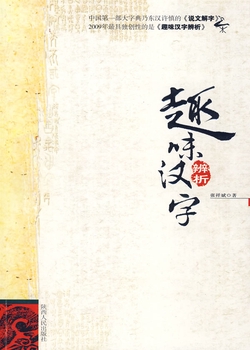 中国第一部大字典乃东汉许慎的《说文解字》
2009年最具独创性的是《趣味汉字辨析》
趣味汉字
辨析
著
陕西人民出版社